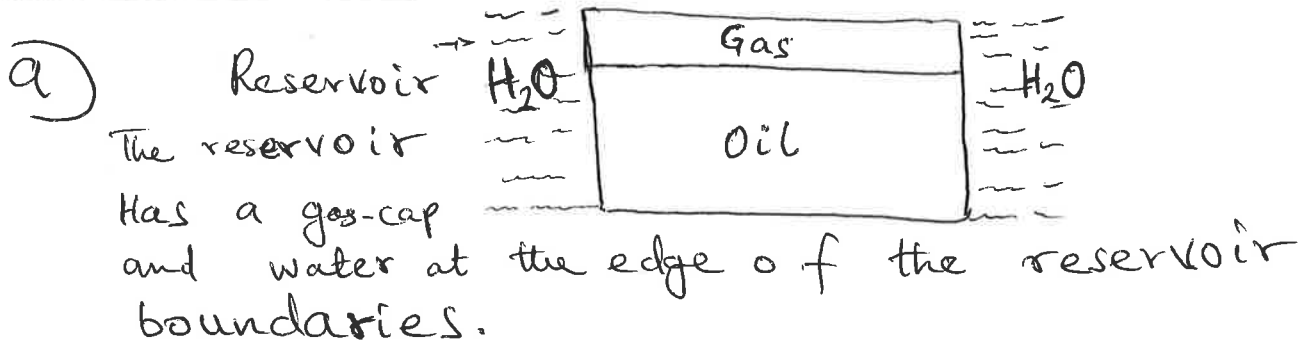 a) Reservoir → H₂O Gas H₂O
The reservoir Oil
Has a gas-cap
and water at the edge of the reservoir
boundaries.